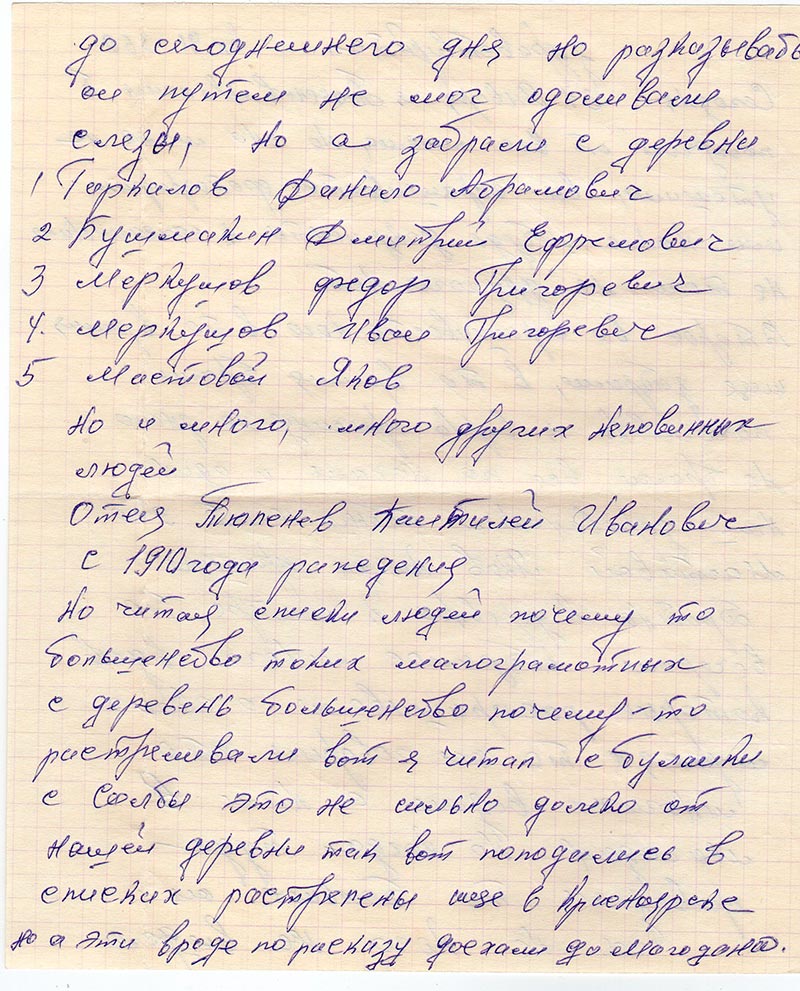 до сегоднешнего дня но разказывать
он путем не мог одоливали
слезы, но а забрали с деревни
1 Таркалов Данило Абрамович
2 Кушмакин Дмитрий Ефремович
3 Меркушов Федор Григоревич
4. Меркушов Иван Григоревич
5 Мастовой Яков
Но и много, много других неповинных
людей
Отец Тюпенев Иванович
с 1910 года рождения
но читая списки людей почему то
большенсво таких малограмотных
с деревень большенсво почему-то
растреливали вот я читал с буланки
с Солбы это не сильно далеко от
нашей деревни так вот поподились в
списких растрелены еще в Красноярске
но а эти вроде по раскązу доехали до Магодана.